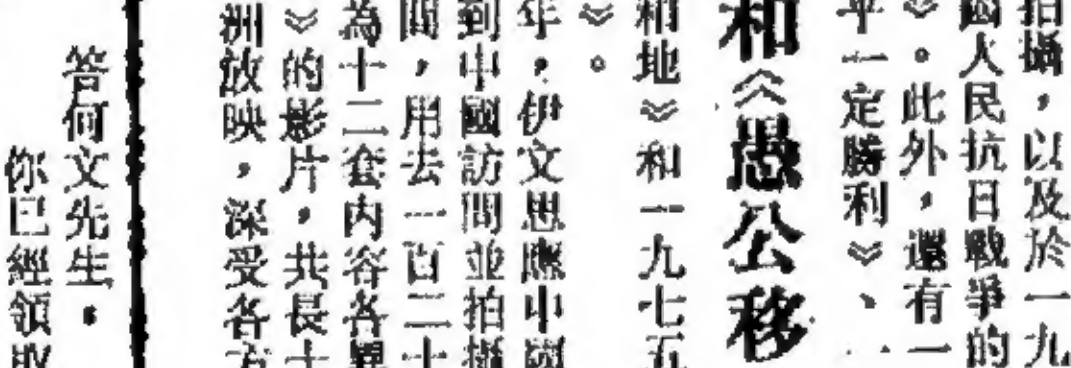 拍攝，以及於一九
國人民抗日戰爭的
》。此外，還有一
平一定勝利》、一
和《愚公移
和地》和一九七五
》。
年，伊文思應中國
到中國訪問並拍攝
間，用去一百二十
為十二套內容各異
》的影片，共長十
洲放映，深受各方
答何文先生，
你已經領取